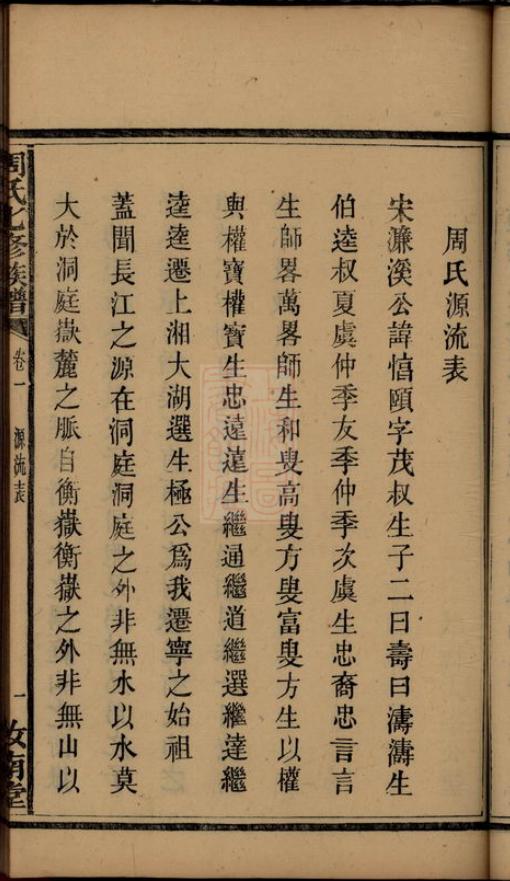 周氏源流表
宋濂溪公諱惇頤字茂叔生子二曰壽曰濤濤生
伯逵叔夏虞仲季友季仲季次虞生忠裔忠言言
生師畧萬畧師生和叟高叟方叟富叟方生以權
與權寶權寶生忠遠遠生繼通繼道繼選繼達繼
逵逵遷上湘大湖選生極公爲我遷寧之始祖
蓋聞長江之源在洞庭洞庭之外非無水以水莫
大於洞庭嶽麓之脈自衡嶽衡嶽之外非無山以
周氏七修族譜
卷一
源流表
一
汝南堂